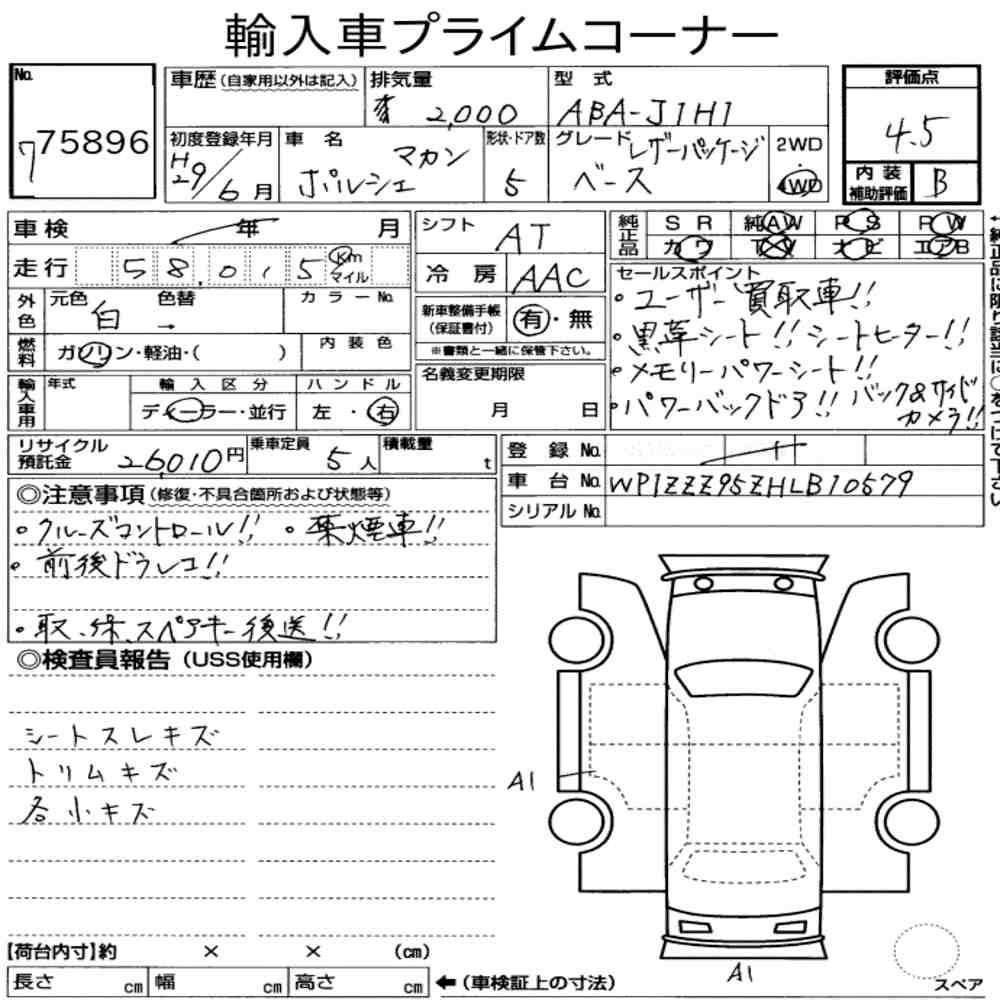 輸入車プライムコーナー
No. 775896
車歴(自家用以外は記入) 排気量 2,000 型式 ABA-J1H1
評価点 4.5
初度登録年月 H29/6月 車名 マカン ポルシェ 形状・ドア数 5 グレード レザーパッケージ ベース 2WD 4WD
内装補助評価 B
車検 年 月
シフト AT
純正品 SR 純AW PS PW
カワ TV ナビ エアB
走行 58,015 Km マイル
冷房 AAC
セールスポイント
・ユーザー買取車!!
・黒革シート!!シートヒーター!!
・メモリーパワーシート!!
・パワーバックドア!! バック&サイドカメラ!!
←純正品に限り該当に○をつけて下さい
外色 元色 白 色替 → カラーNo.
新車整備手帳(保証書付) 有・無
※書類と一緒に保管下さい。
燃料 ガソリン・軽油・( ) 内装色
名義変更期限 月 日
輸入車用 年式 輸入区分 ハンドル
ディーラー・並行 左・右
リサイクル預託金 26,010円 乗車定員 5人 積載量 t
登録No.
車台No. WP1ZZZ95ZHLB10579
シリアルNo.
◎注意事項(修復・不具合箇所および状態等)
・クルーズコントロール!! ・禁煙車!!
・前後ドラレコ!!
・取、保、スペアキー後送!!
◎検査員報告(USS使用欄)
シートスレキズ
トリムキズ
各小キズ
A1
A1
【荷台内寸】約 × × (cm)
長さ cm 幅 cm 高さ cm ←(車検証上の寸法)
スペア